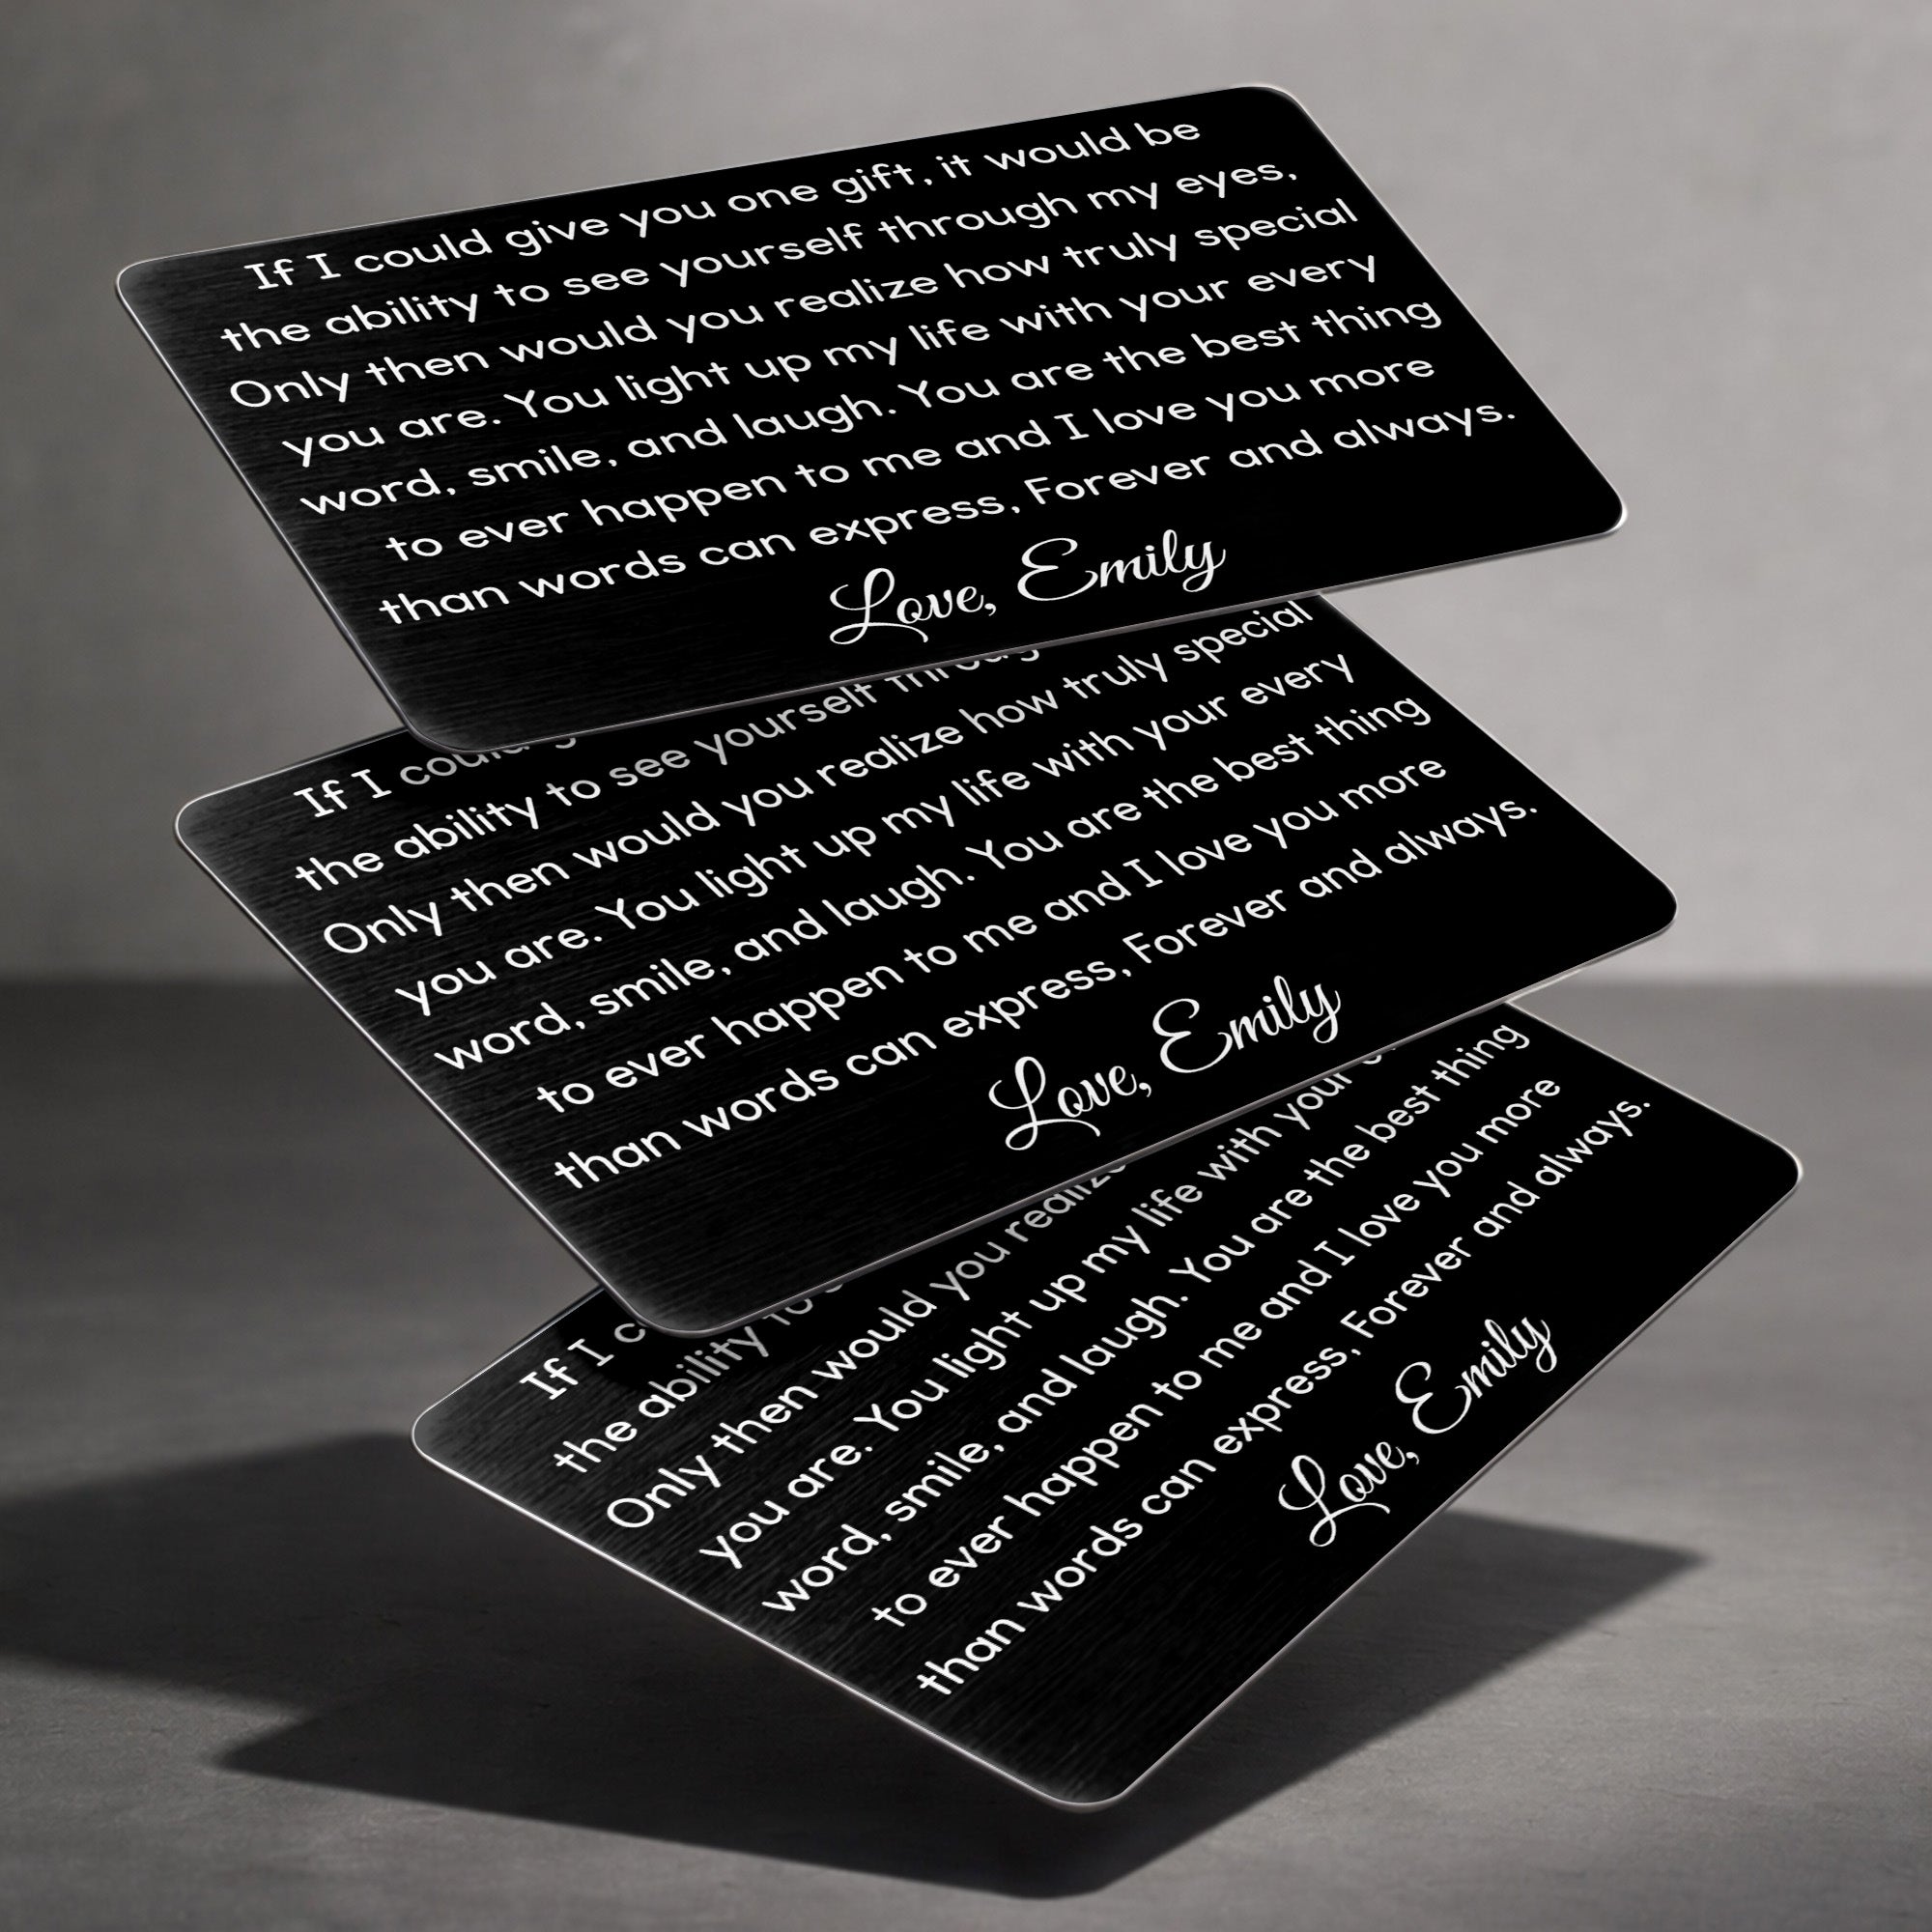 If I could give you one gift, it would be
the ability to see yourself through my eyes,
Only then would you realize how truly special
you are. You light up my life with your every
word, smile, and laugh. You are the best thing
to ever happen to me and I love you more
than words can express, Forever and always.
Love, Emily
If I could
the ability to see yourself through
Only then would you realize how truly special
you are. You light up my life with your every
word, smile, and laugh. You are the best thing
to ever happen to me and I love you more
than words can express, Forever and always.
Love, Emily
If I
the ability to
Only then would you realize
you are. You light up my life with your
word, smile, and laugh. You are the best thing
to ever happen to me and I love you more
than words can express, Forever and always.
Love, Emily